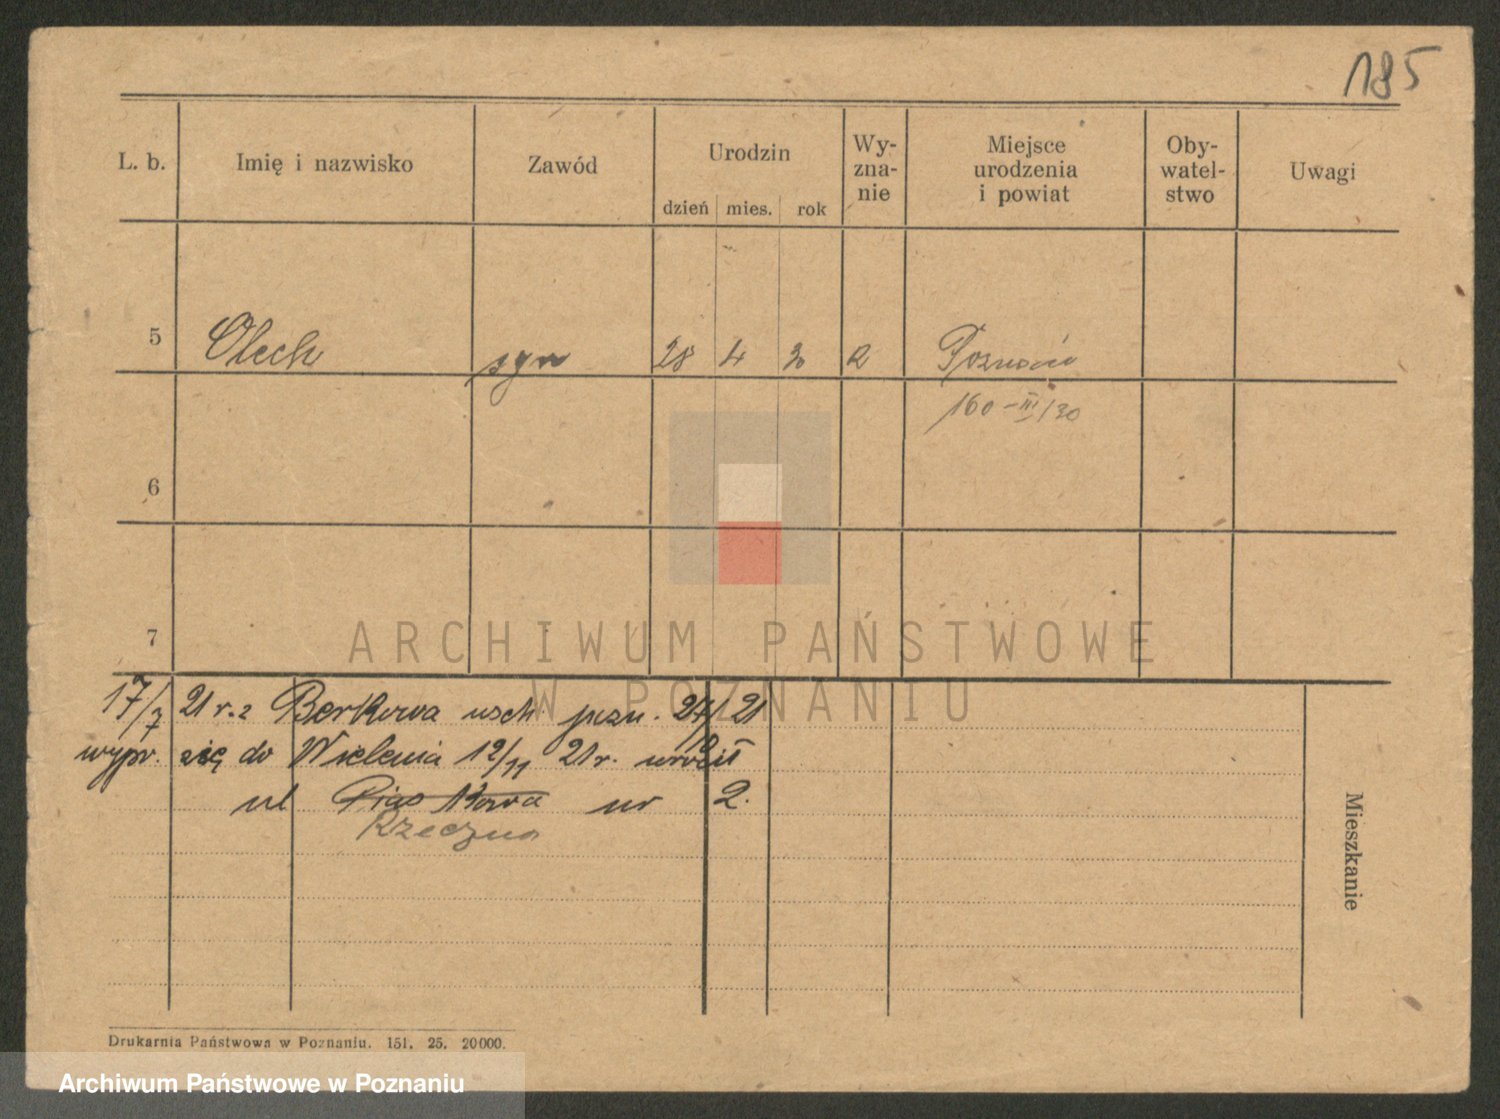 185
L. b. Imię i nazwisko Zawód Urodzin Wy-zna-nie Miejsce urodzenia i powiat Oby-watel-stwo Uwagi
dzień mies. rok
5 Olech syn 28 4 30 R Poznań
160-III/30
6
7
ARCHIWUM PAŃSTWOWE
W POZNANIU
17/7 21 r. z Berkowa 21
wypr. się do Wielenia 12/11 21 r. wrócił
ul Piaskowa nr 2.
Rzeczna
Mieszkanie
Drukarnia Państwowa w Poznaniu. 151. 25. 20000.
Archiwum Państwowe w Poznaniu